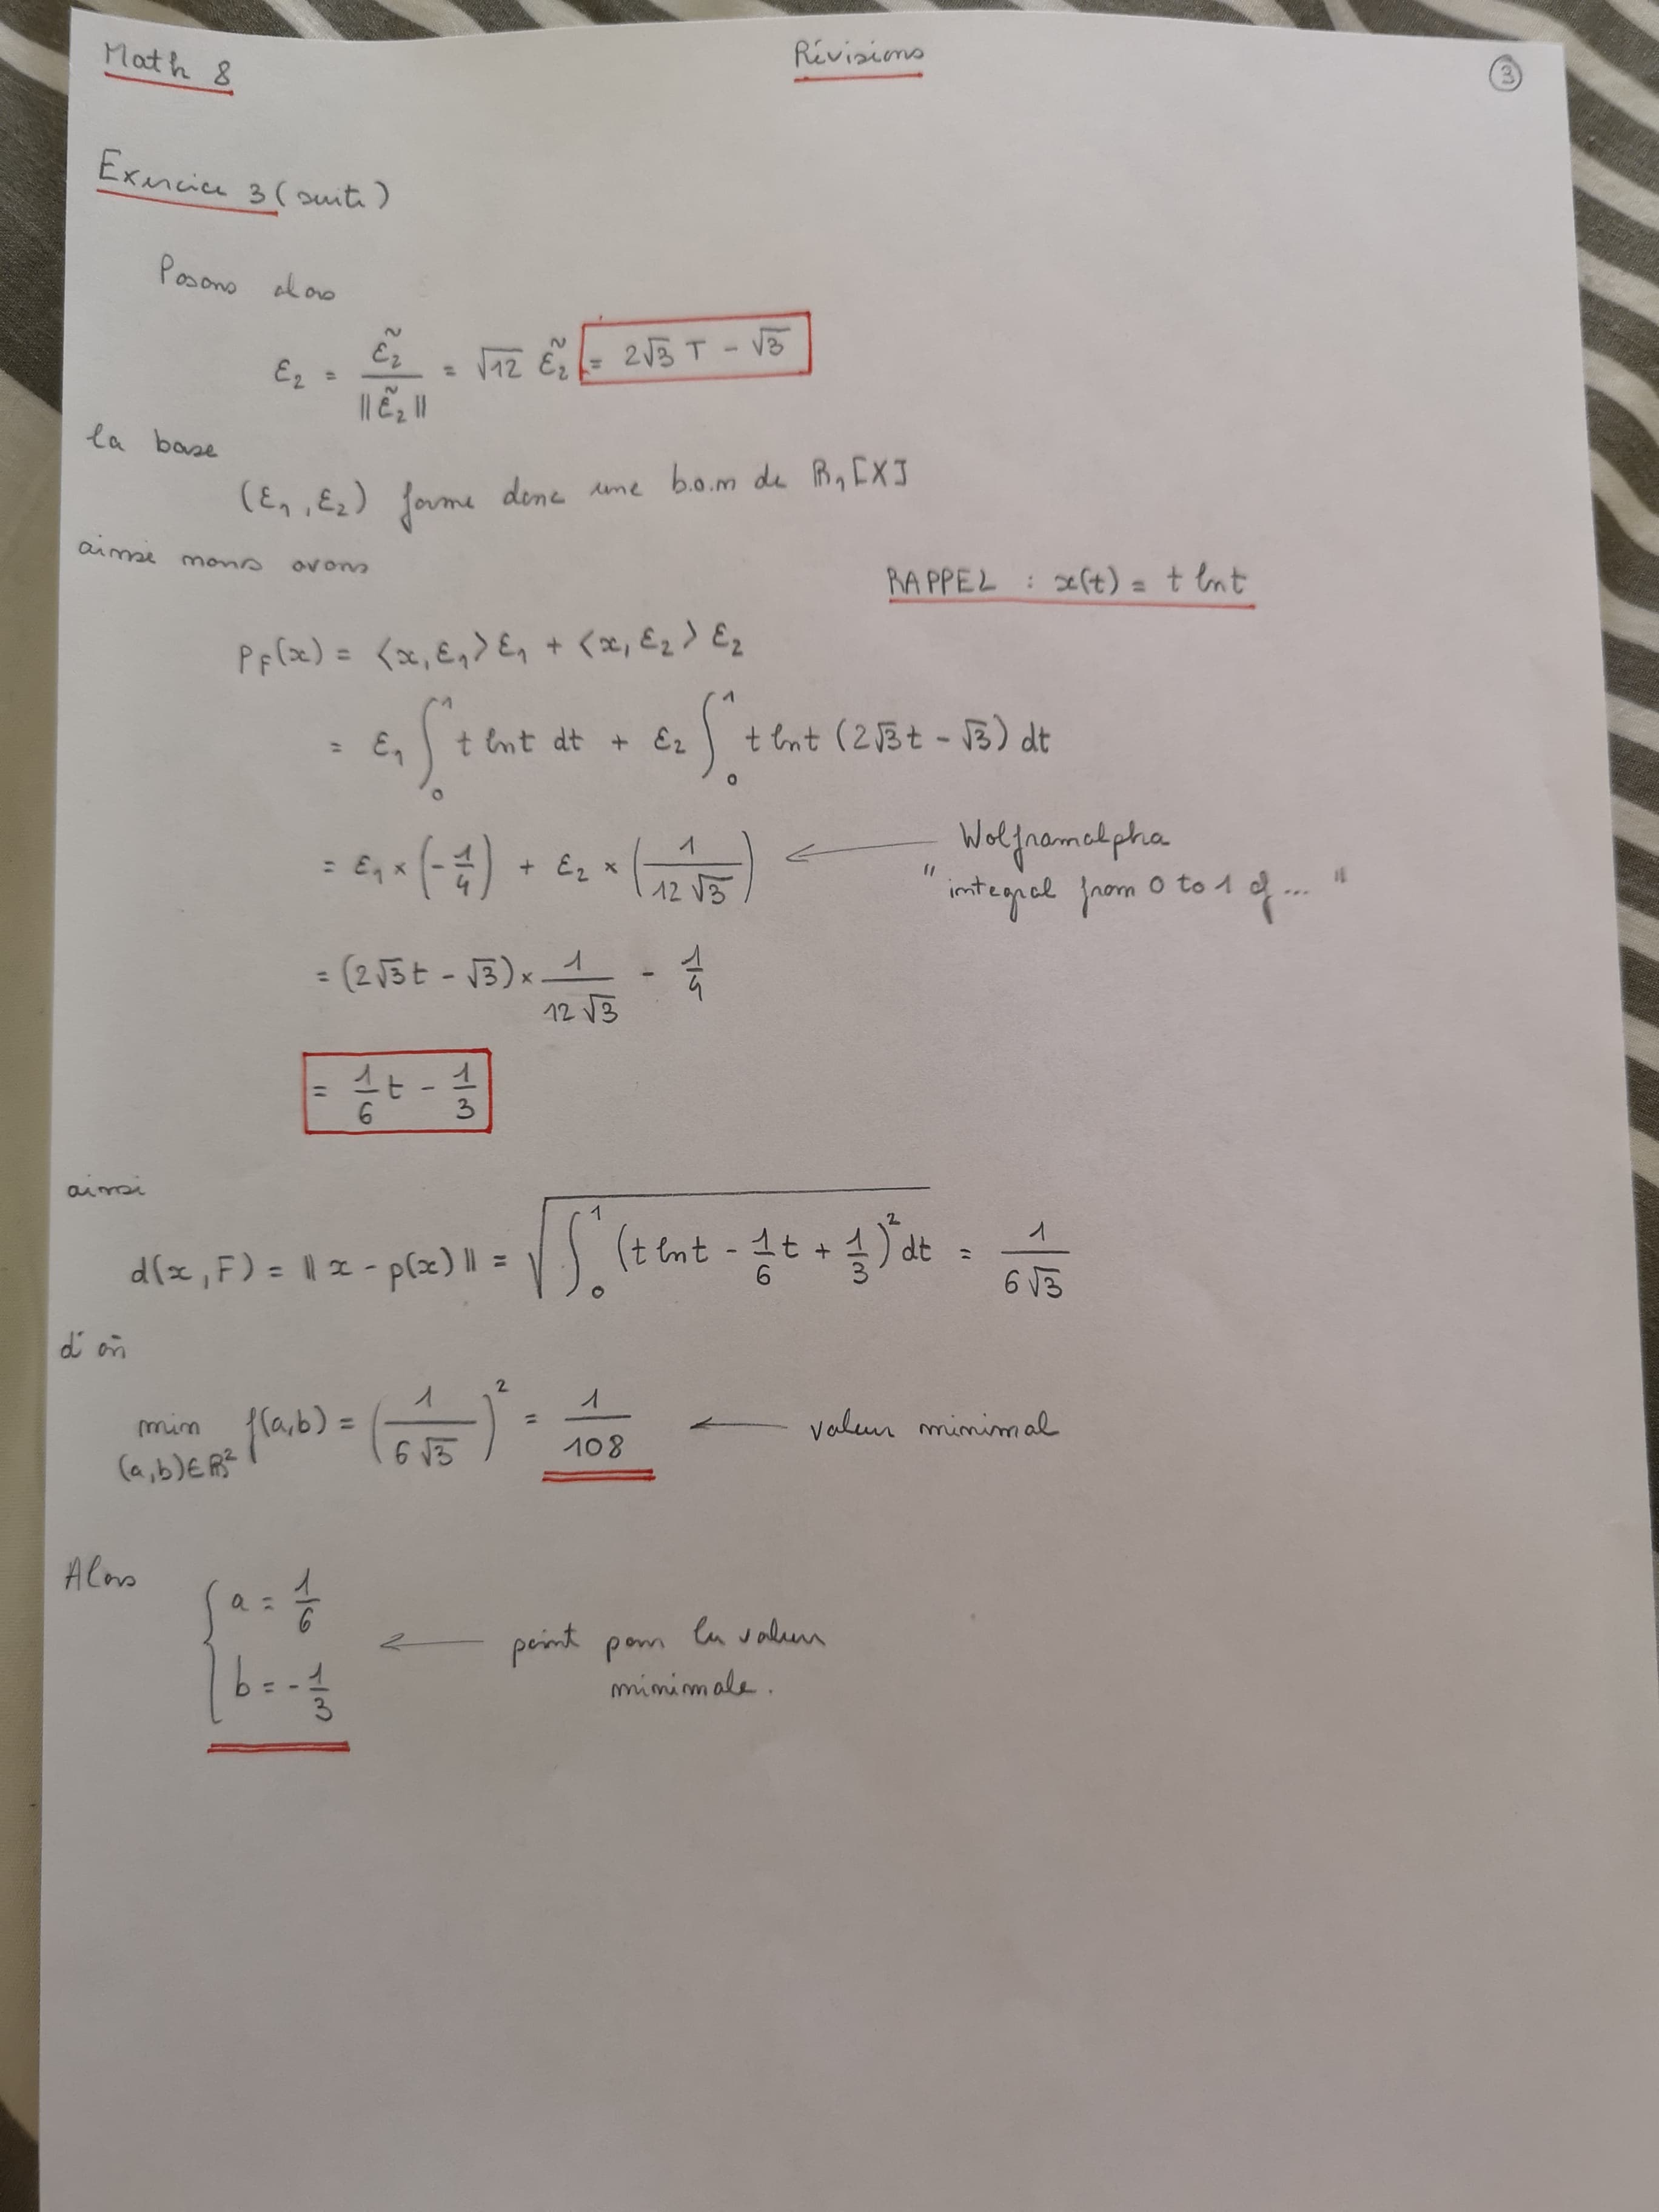 Math 8
Révisions
3
Exercice 3 (suite)
Posons alors
ε₂ = ε̃₂ / ||ε̃₂|| = √12 ε̃₂ = 2√3 T - √3
la base
(ε₁, ε₂) forme donc une b.o.n de ℝ₁[X]
ainsi nous avons
RAPPEL : x(t) = t ln t
P_F(x) = <x, ε₁> ε₁ + <x, ε₂> ε₂
= ε₁ ∫₀¹ t ln t dt + ε₂ ∫₀¹ t ln t (2√3 t - √3) dt
= ε₁ × (-1/4) + ε₂ × (1/(12√3)) ← Wolframalpha
" integral from 0 to 1 of ... "
= (2√3 t - √3) × 1/(12√3) - 1/4
= 1/6 t - 1/3
ainsi
d(x, F) = || x - p(x) || = √(∫₀¹ (t ln t - 1/6 t + 1/3)² dt) = 1/(6√3)
d'où
min (a,b)∈ℝ² f(a,b) = (1/(6√3))² = 1/108 ← valeur minimal
Alors
{ a = 1/6
b = -1/3
← point pour la valeur
minimale.